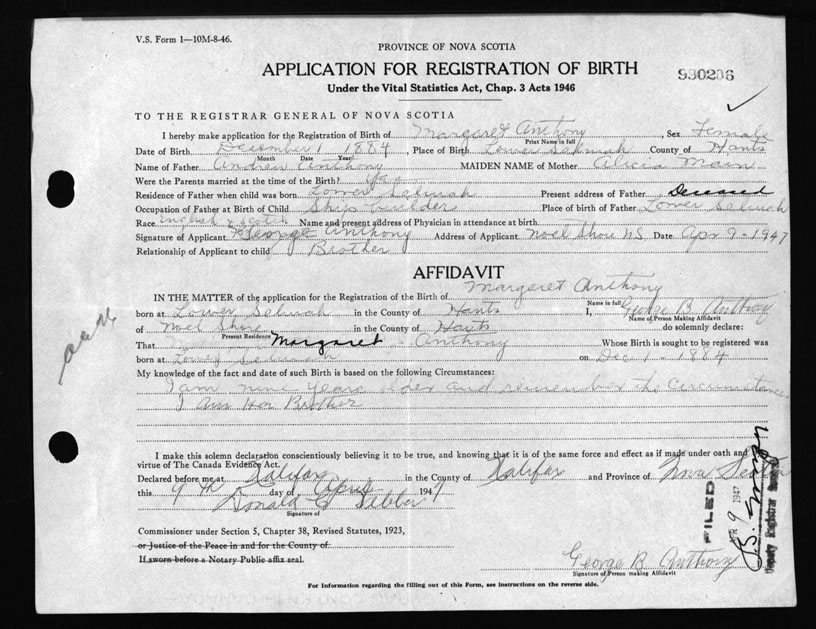 V.S. Form 1—10M-8-46.
PROVINCE OF NOVA SCOTIA
APPLICATION FOR REGISTRATION OF BIRTH
930206
Under the Vital Statistics Act, Chap. 3 Acts 1946
TO THE REGISTRAR GENERAL OF NOVA SCOTIA
I hereby make application for the Registration of Birth of Margaret Anthony, Sex Female
Print Name in full
Date of Birth December 1 1884, Place of Birth Lower Selmah County of Hants
Month Date Year
Name of Father Andrew Anthony MAIDEN NAME of Mother Alicia Main
Were the Parents married at the time of the Birth? Yes
Residence of Father when child was born Lower Selmah Present address of Father Deceased
Occupation of Father at Birth of Child Ship builder Place of birth of Father Lower Selmah
Race English & Scotch Name and present address of Physician in attendance at birth
Signature of Applicant George Anthony Address of Applicant Noel Shore NS Date Apr 9-1947
Relationship of Applicant to child Brother
AFFIDAVIT
IN THE MATTER of the application for the Registration of the Birth of Margaret Anthony
Name in full
born at Lower Selmah in the County of Hants I, George B Anthony
Name of Person Making Affidavit
of Noel Shore in the County of Hants do solemnly declare:
Present Residence
That Margaret Anthony Whose Birth is sought to be registered was
born at Lower Selmah on Dec 1-1884
My knowledge of the fact and date of such Birth is based on the following Circumstances:
I am nine years older and remember the circumstances
I am Her Brother
I make this solemn declaration conscientiously believing it to be true, and knowing that it is of the same force and effect as if made under oath and by
virtue of The Canada Evidence Act.
Declared before me at Halifax in the County of Halifax and Province of Nova Scotia
this 9th day of April 1947
Donald
Signature of
Commissioner under Section 5, Chapter 38, Revised Statutes, 1923,
or Justice of the Peace in and for the County of
If sworn before a Notary Public affix seal.
George B Anthony
Signature of Person making Affidavit
FILED
APR 9 1947
Deputy Registrar General
For Information regarding the filling out of this Form, see instructions on the reverse side.